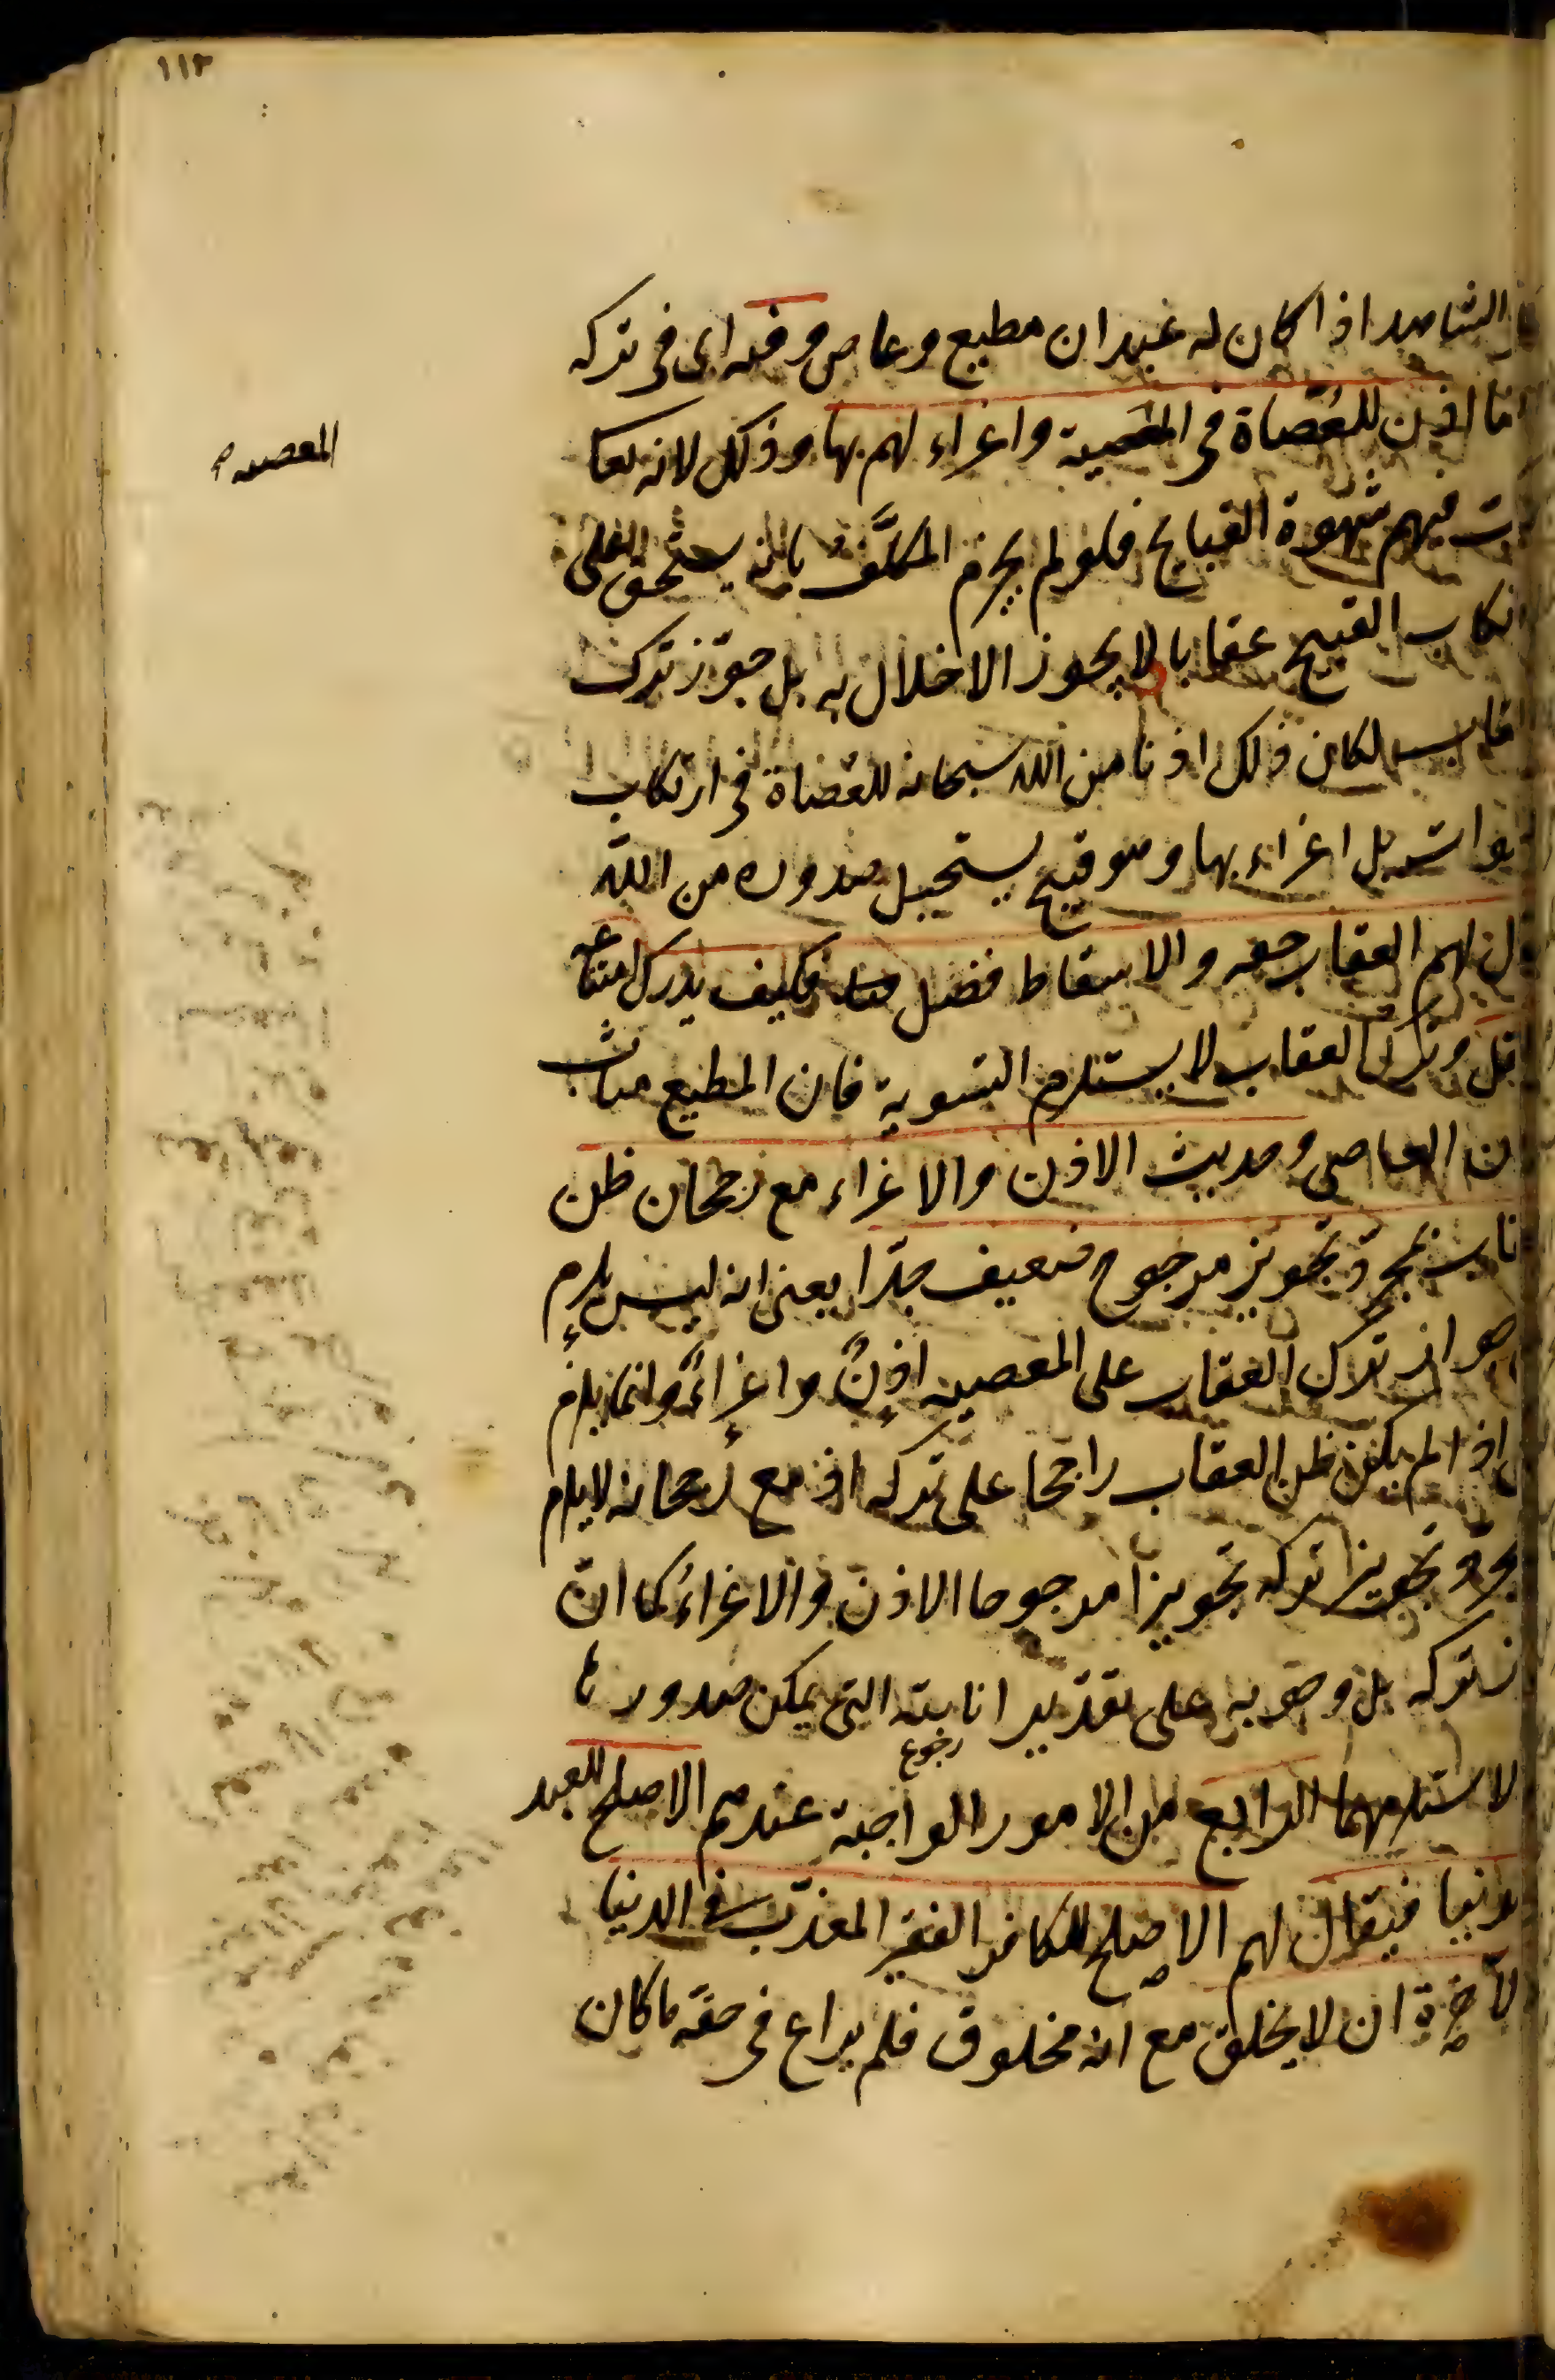 ١١٢
الشاهد اذا كان له عبدان مطيع وعاص وفيه اى فى تركه
اذن للعُصاة فى المعصية واغراء لهم بها وذلك لانه تعا
المعصيه
فيهم شهوة القبايح فلولم يجزم المكلَّف بانه يستحق على
القبيح عقابا لا يجوز الاخلال به بل جوّز ترك
لكان ذلك اذنا من الله سبحانه للعُصاة فى ارتكاب
بل اغراء بها وهو قبيح يستحيل صدوره من الله
لهم العقاب حقه والاسقاط فضل منه فكيف يدرك امتناعه
وترك العقاب لا يستلزم التسوية فان المطيع مثاب
العاصى وحديث الاذن والاغراء مع رجحان ظن
بمجرّد تجويز مرجوح ضعيف جدّا يعنى انه ليس يلزم
جواز ترك العقاب على المعصيه اذنٌ واغراءٌ وانما يلزم
اذا لم يكن ظن العقاب راجحا على تركه اذ مع رجحانه لا يلزم
تجويز تركه تجويزا مرجوحا الاذن والاغراء كما انّ
تركه بل وجوبه على تقدير انابته التى يمكن صدورها
رجوع
لا يستلزمهما الرابع من الامور الواجبة عندهم الاصلح للعبد
فيقال لهم الاصلح للكافر الفقير المعذّب فى الدنيا
ان لا يخلق مع انه مخلوق فلم يراع فى حقه ما كان